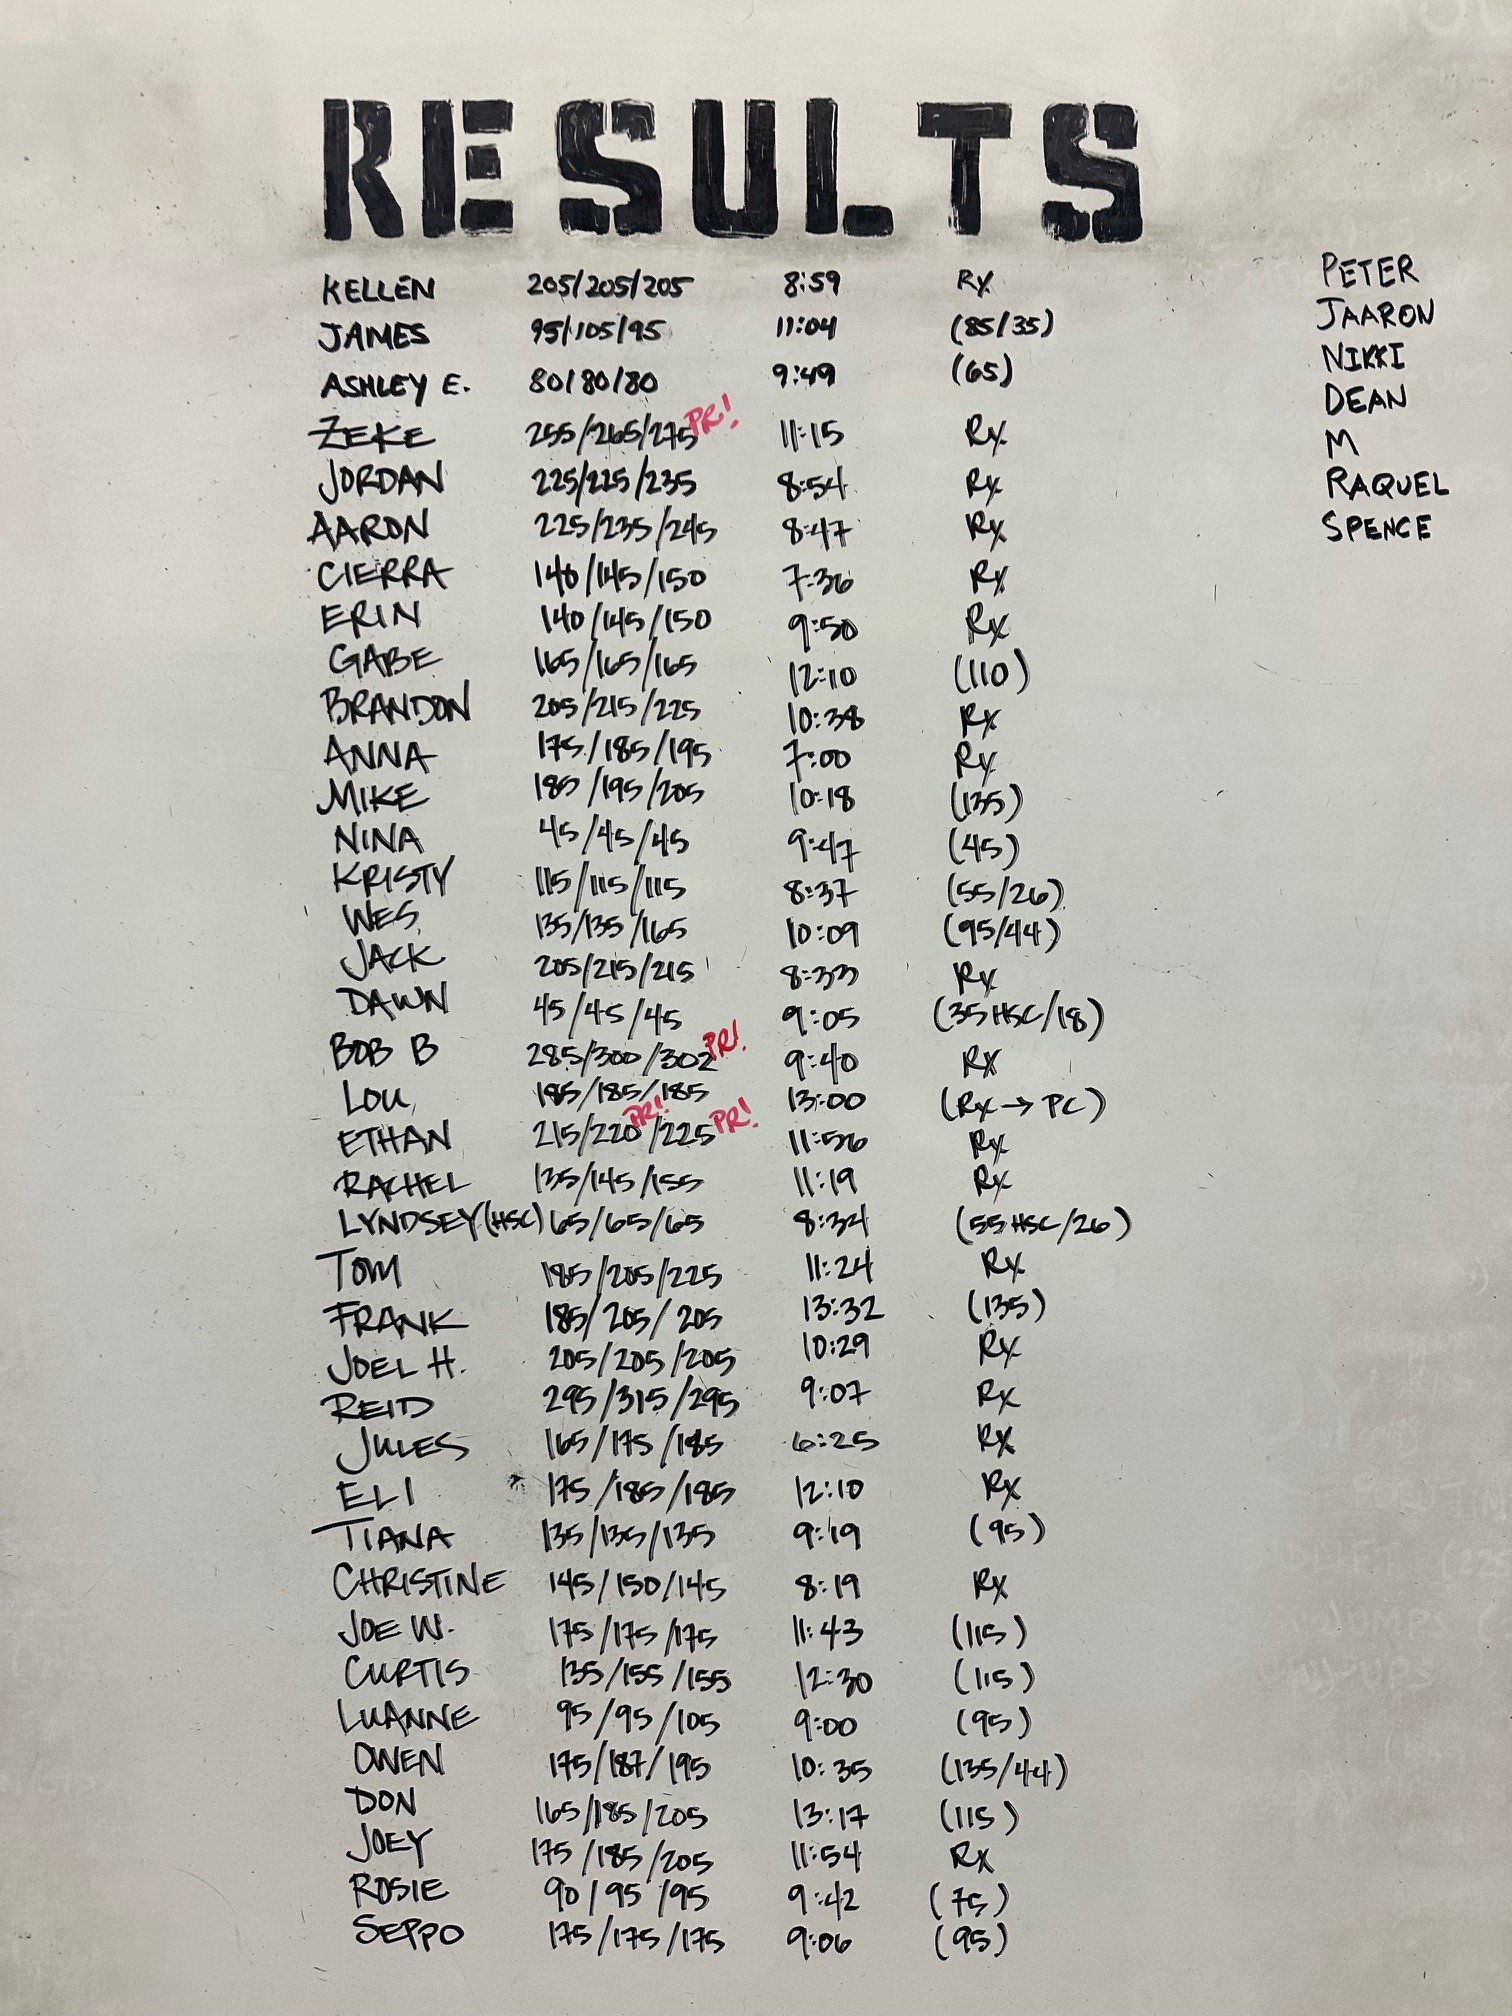 RESULTS
KELLEN 205/205/205 8:59 Rx
JAMES 95/105/95 11:04 (85/35)
ASHLEY E. 80/80/80 9:49 (65)
ZEKE 255/265/275 PR! 11:15 Rx
JORDAN 225/225/235 8:54 Rx
AARON 225/235/245 8:47 Rx
CIERRA 140/145/150 7:36 Rx
ERIN 140/145/150 9:50 Rx
GABE 165/165/165 12:10 (110)
BRANDON 205/215/225 10:38 Rx
ANNA 175/185/195 7:00 Rx
MIKE 185/195/205 10:18 (135)
NINA 45/45/45 9:47 (45)
KRISTY 115/115/115 8:37 (55/26)
WES 135/135/165 10:09 (95/44)
JACK 205/215/215 8:33 Rx
DAWN 45/45/45 9:05 (35 HSC/18)
BOB B 285/300/302 PR! 9:40 Rx
LOU 185/185/185 13:00 (Rx → PC)
ETHAN 215/220 PR! /225 PR! 11:56 Rx
RACHEL 135/145/155 11:19 Rx
LYNDSEY (HSC) 65/65/65 8:34 (55 HSC/26)
TOM 185/205/225 11:24 Rx
FRANK 185/205/205 13:32 (135)
JOEL H. 205/205/205 10:29 Rx
REID 295/315/295 9:07 Rx
JULES 165/175/185 6:25 Rx
ELI 175/185/185 12:10 Rx
TIANA 135/135/135 9:19 (95)
CHRISTINE 145/150/145 8:19 Rx
JOE W. 175/175/175 11:43 (115)
CURTIS 135/155/155 12:30 (115)
LUANNE 95/95/105 9:00 (95)
OWEN 175/187/195 10:35 (135/44)
DON 165/185/205 13:17 (115)
JOEY 175/185/205 11:54 Rx
ROSIE 90/95/95 9:42 (75)
SEPPO 175/175/175 9:06 (95)
PETER
JAARON
NIKKI
DEAN
M
RAQUEL
SPENCE